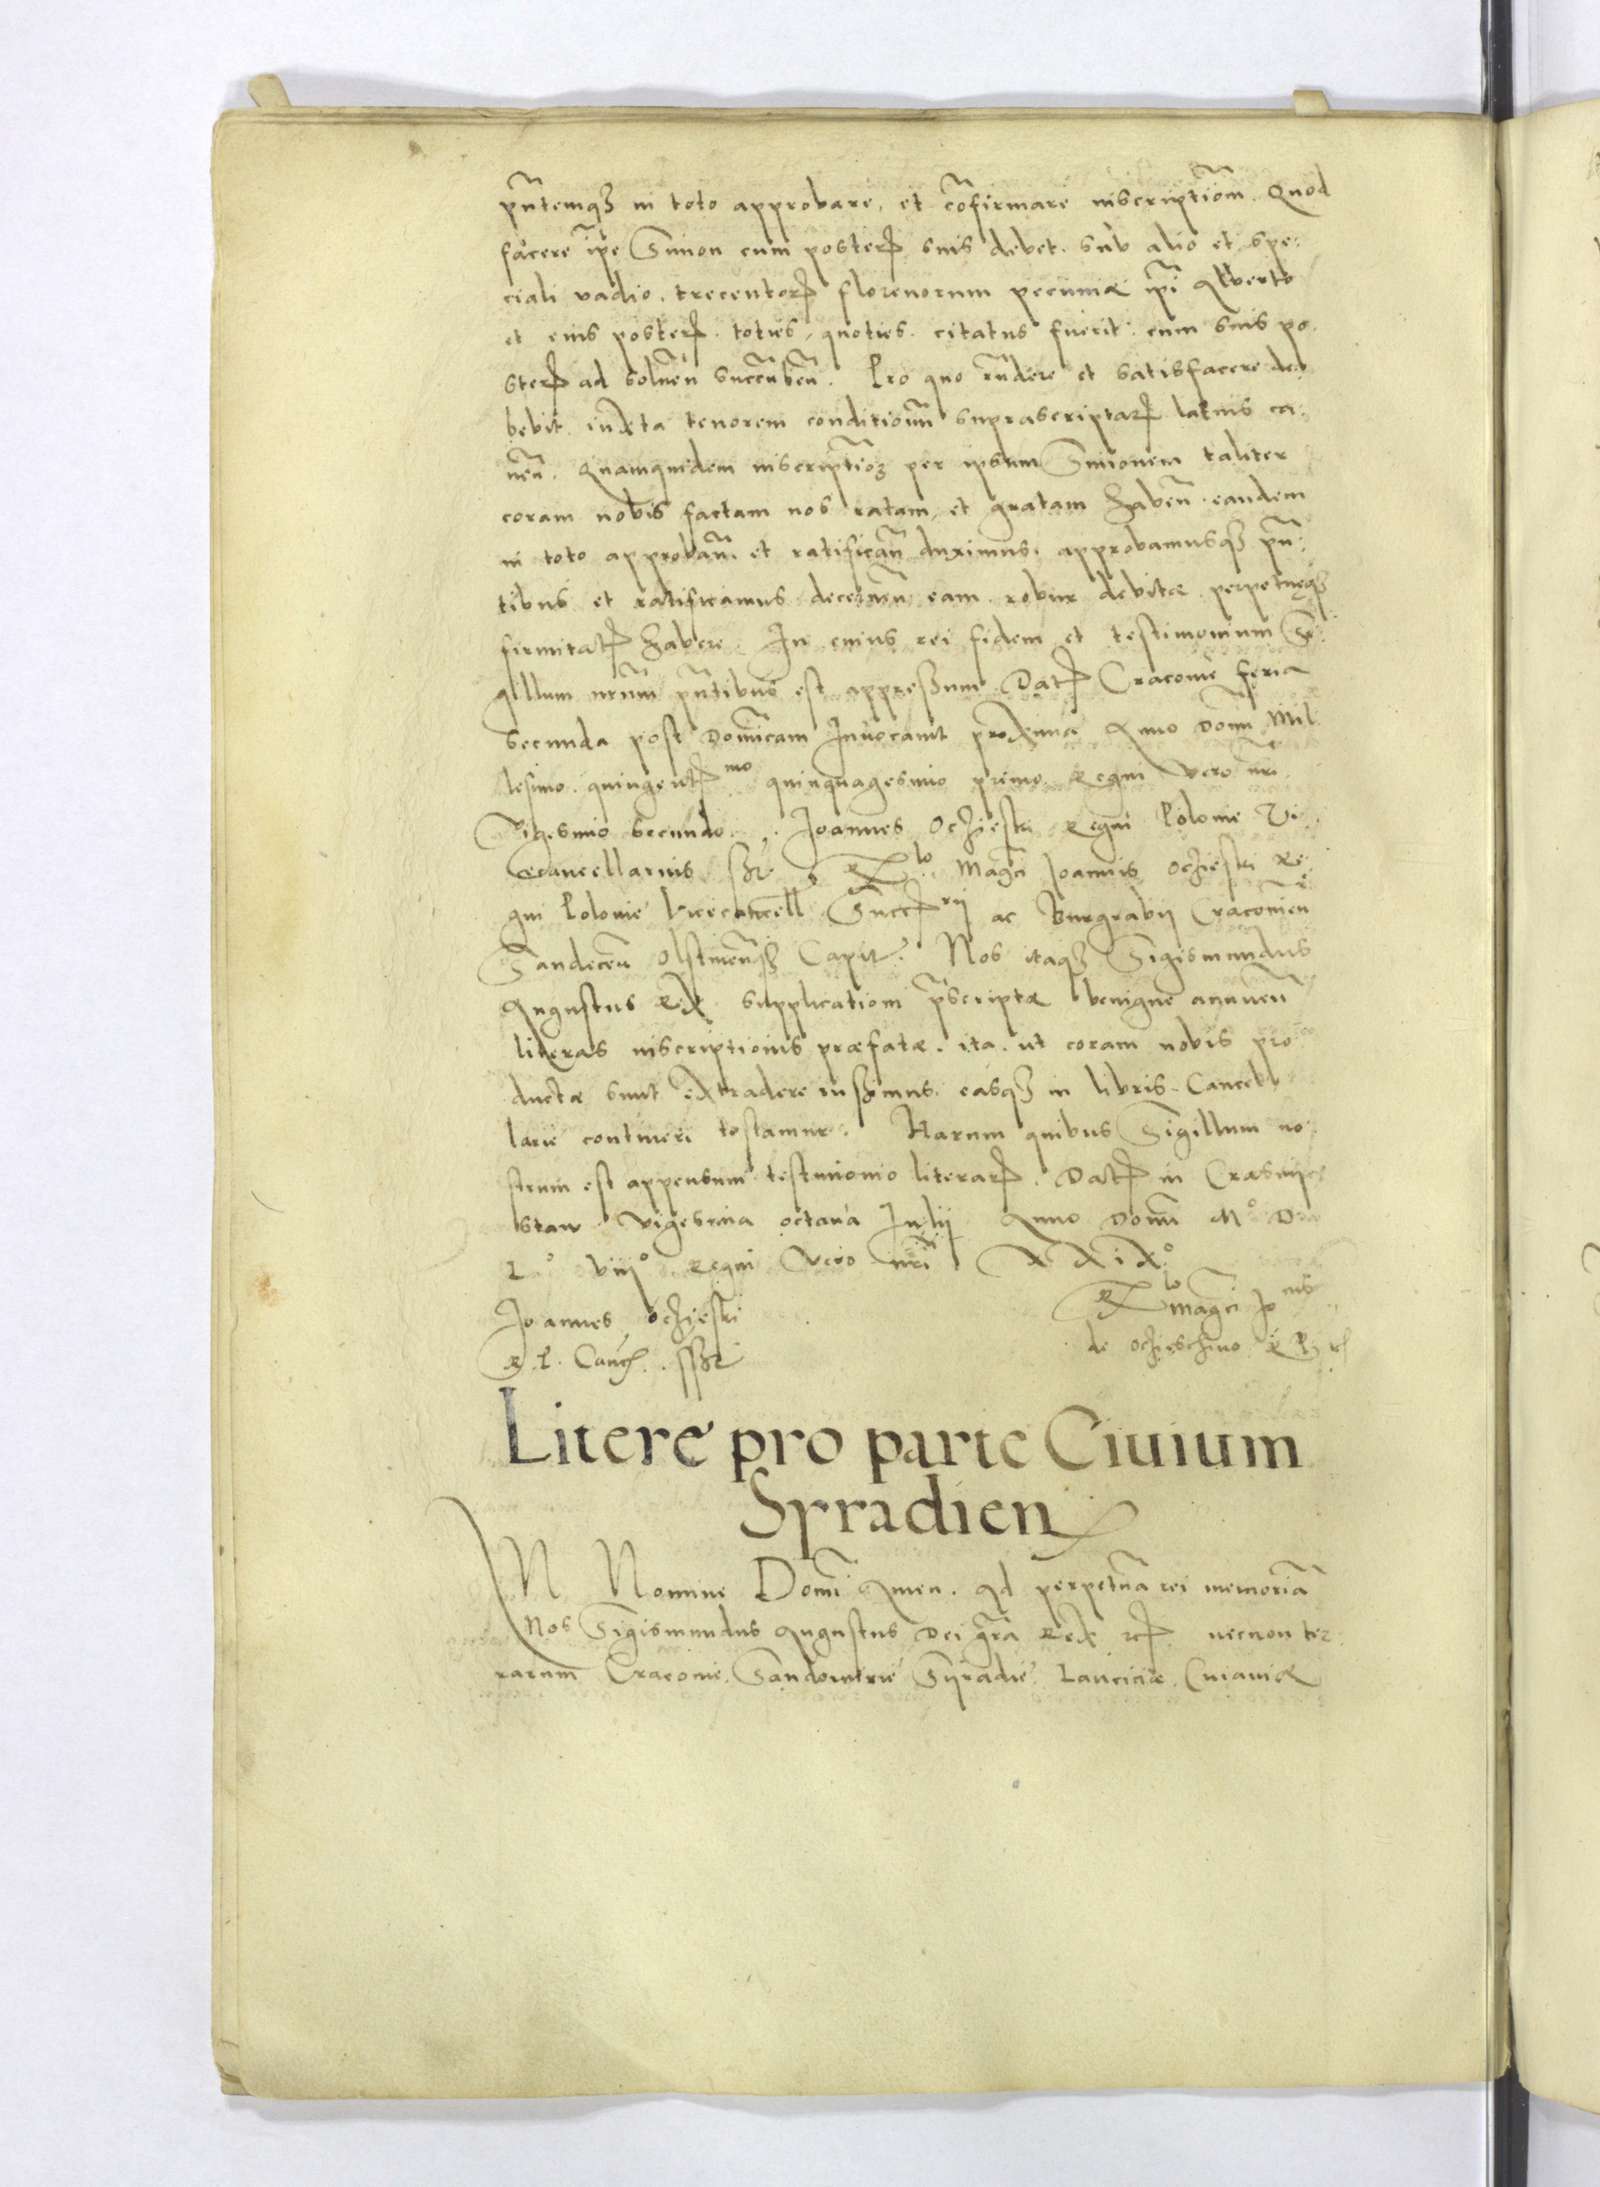 pñtemq3 in toto approbare, et cõfirmare inscriptiõm. Quod
facere ip̃e Simon cum posterꝝ suis debet. sub alio et spe:
ciali vadio. trecentorꝝ florenorum pecuniæ ip̃i Alberto
et eius posterꝝ. toties, quoties. citatus fuerit. cum suis po
sterꝝ ad solueñ succubeñ. Pro quo r̃ndere et satisfacere de
bebit. iuxta tenorem conditionũ suprascriptarꝝ latius ca:
ueñ. Quamquidem inscriptioẽ per ipsum Simonem taliter
coram nobis factam nos ratam, et gratam habeñ. eandem
in toto approbañ. et ratificañ duximus. approbamusq3 pñ:
tibus et ratificamus decerneñ eam robur debitæ perpetueq3
firmitatꝭ habere. In cuius rei fidem et testimonium Si:
gillum nr̃um pñtibus est appressum. Datꝭ Cracovie feria
secunda post Dominicam Inuocauit proxima Anno Domĩ Mil
lesimo. quingentꝭmo quinquagesimo primo. Regni vero nr̃i
Vigesimo secundo. Joannes Ocziesky Regni Polonie Vi
cecancellarius sst. Rlo. Magci Joannis Ocziesky Re
gni Polonie Vicecancell Succꝭrij ac Burgrabij Cracovieñ
Sandeceñ Olstineñq3 Capit. Nos itaq3 Sigismundus
Augustus Rex supplicationi p̃scriptæ benigne annueñ
literas inscriptionis præfatæ. ita. ut coram nobis pro
ductæ sunt extradere iussimus. easq3 in libris Cancel
larie contineri testamur. Harum quibus Sigillum no
strum est appensum testimonio literarꝝ. Datꝭ in Crasnys
staw vigesima octaua Julij Anno Domĩ M° D
L° viij° Regni vero nr̃i XXIX°
Joannes Ocziesky
R. P. Cancꝭ. sst
Rlo Magci Jonis
de Oczieschino R P
Litere pro parte Ciuium
Syradien
IN Nomine Domĩ Amen. Ad perpetuã rei memoriã
Nos Sigismundus Augustus Dei gr̃a Rex rcꝭ necnon ter
rarum Cracovie. Sandomirie Syradie Lanciciæ Cuiauiæ